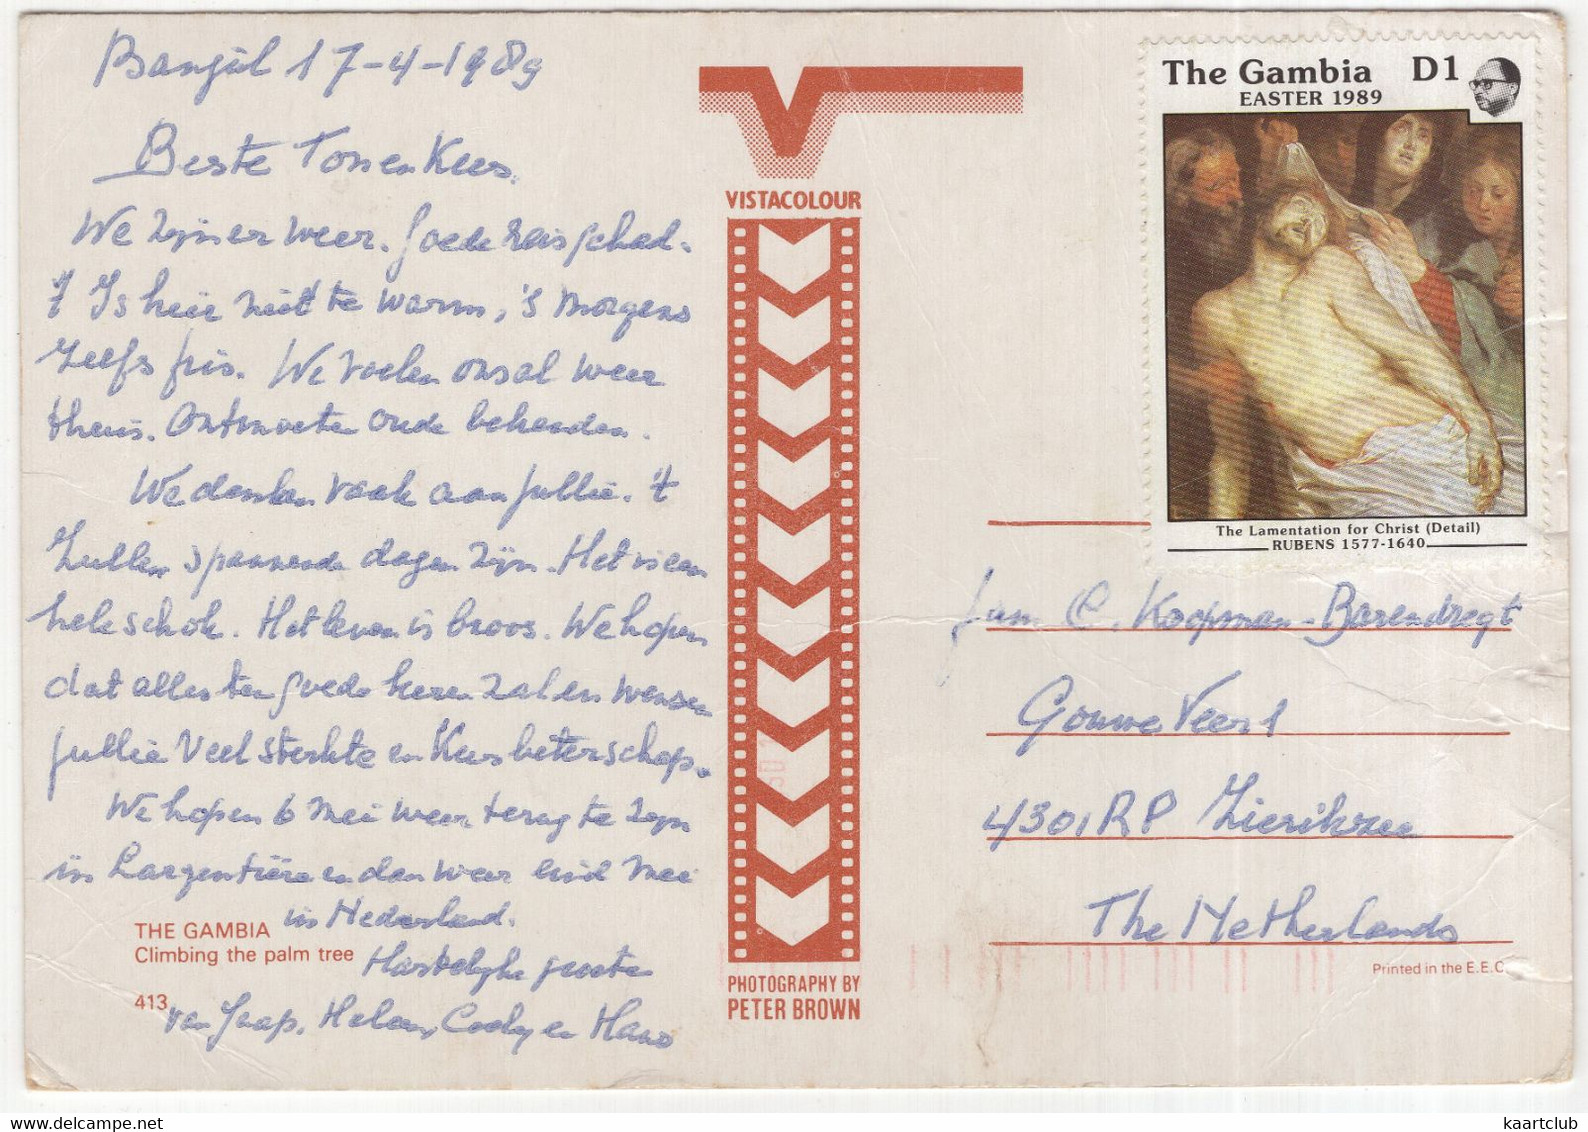 Banjul 17-4-1989
Beste Ton en Kees.
We zijn er weer. Goede reis gehad.
't Is hier niet te warm, 's morgens
zelfs fris. We voelen ons al weer
thuis. Ontmoeten oude bekenden.
We denken vaak aan jullie. 't
Zullen spannende dagen zijn. Het is een
hele schok. Het leven is broos. We hopen
dat alles ten goede keren zal en wensen
jullie veel sterkte en Kees beterschap.
We hopen 6 mei weer terug te zijn
in Largentière en dan weer eind mei
in Nederland.
Hartelijke groeten
van Jaap, Helen, Cocky en Hans
THE GAMBIA
Climbing the palm tree
413
VISTACOLOUR
501
PHOTOGRAPHY BY
PETER BROWN
The Gambia D1
EASTER 1989
The Lamentation for Christ (Detail)
RUBENS 1577-1640
Fam C. Koopman-Barendregt
Gouwe Veer 1
4301 RP Zierikzee
The Netherlands
Printed in the E.E.C.
https://www.delcampe.net
kaartclub